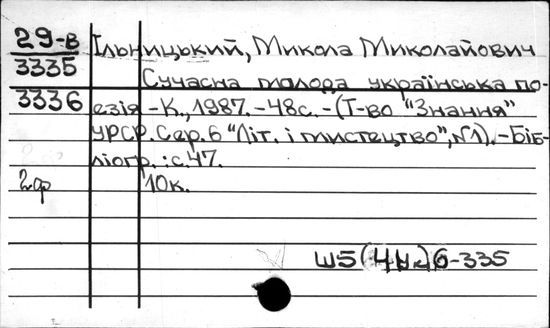 29-в Ільницький, Микола Миколайович
3335 Сучасна молода українська по-
3336 езія. - К., 1987. - 48с. - (Т-во "Знання"
УРСР. Сер. 6 "Літ. і мистецтво", №1). - Біб-
ліогр.: с. 47.
2 ф 10к.
Ш5(4Ук)6-335